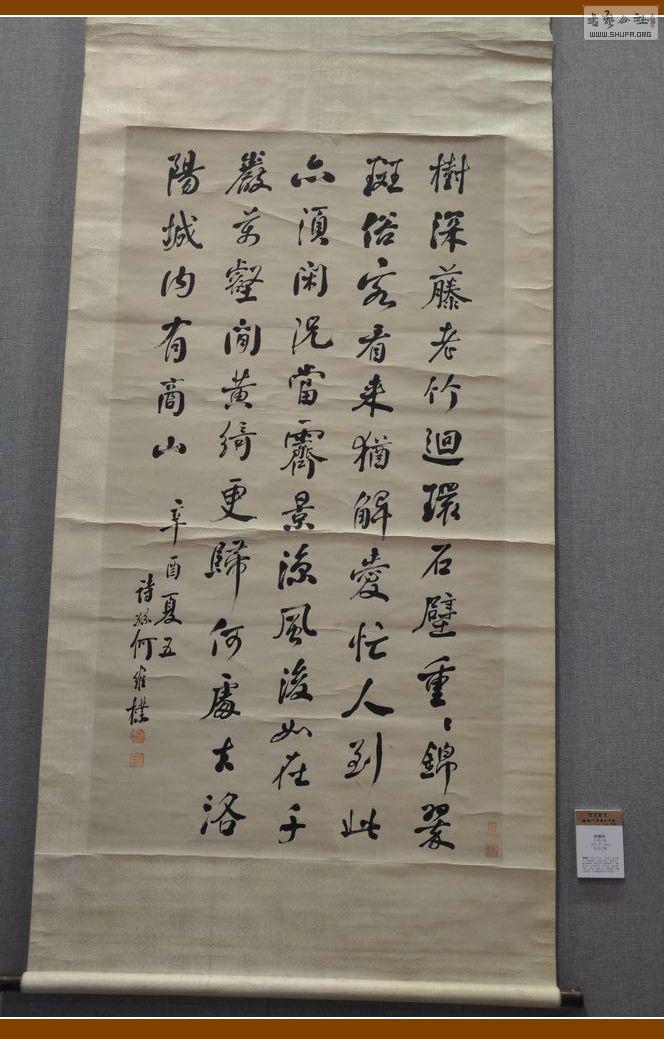 樹深藤老竹迴環石壁重〻錦翠
斑俗客看来猶解愛忙人到此
亦須閑況當霽景涼風後如在千
巖万壑間黄綺更歸何處去洛
陽城内有商山
辛酉夏五
詩孫何維樸
WWW.SHUFA.ORG